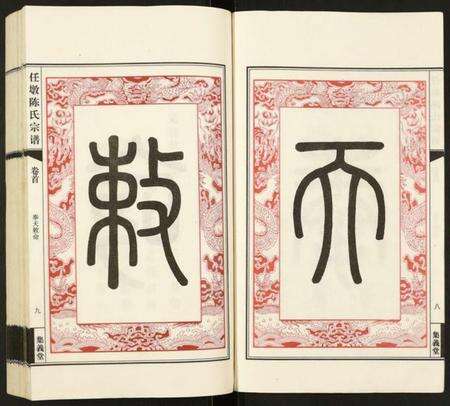 天
八
敕
任墩陈氏宗谱
卷首
奉天敕命
九
集義堂